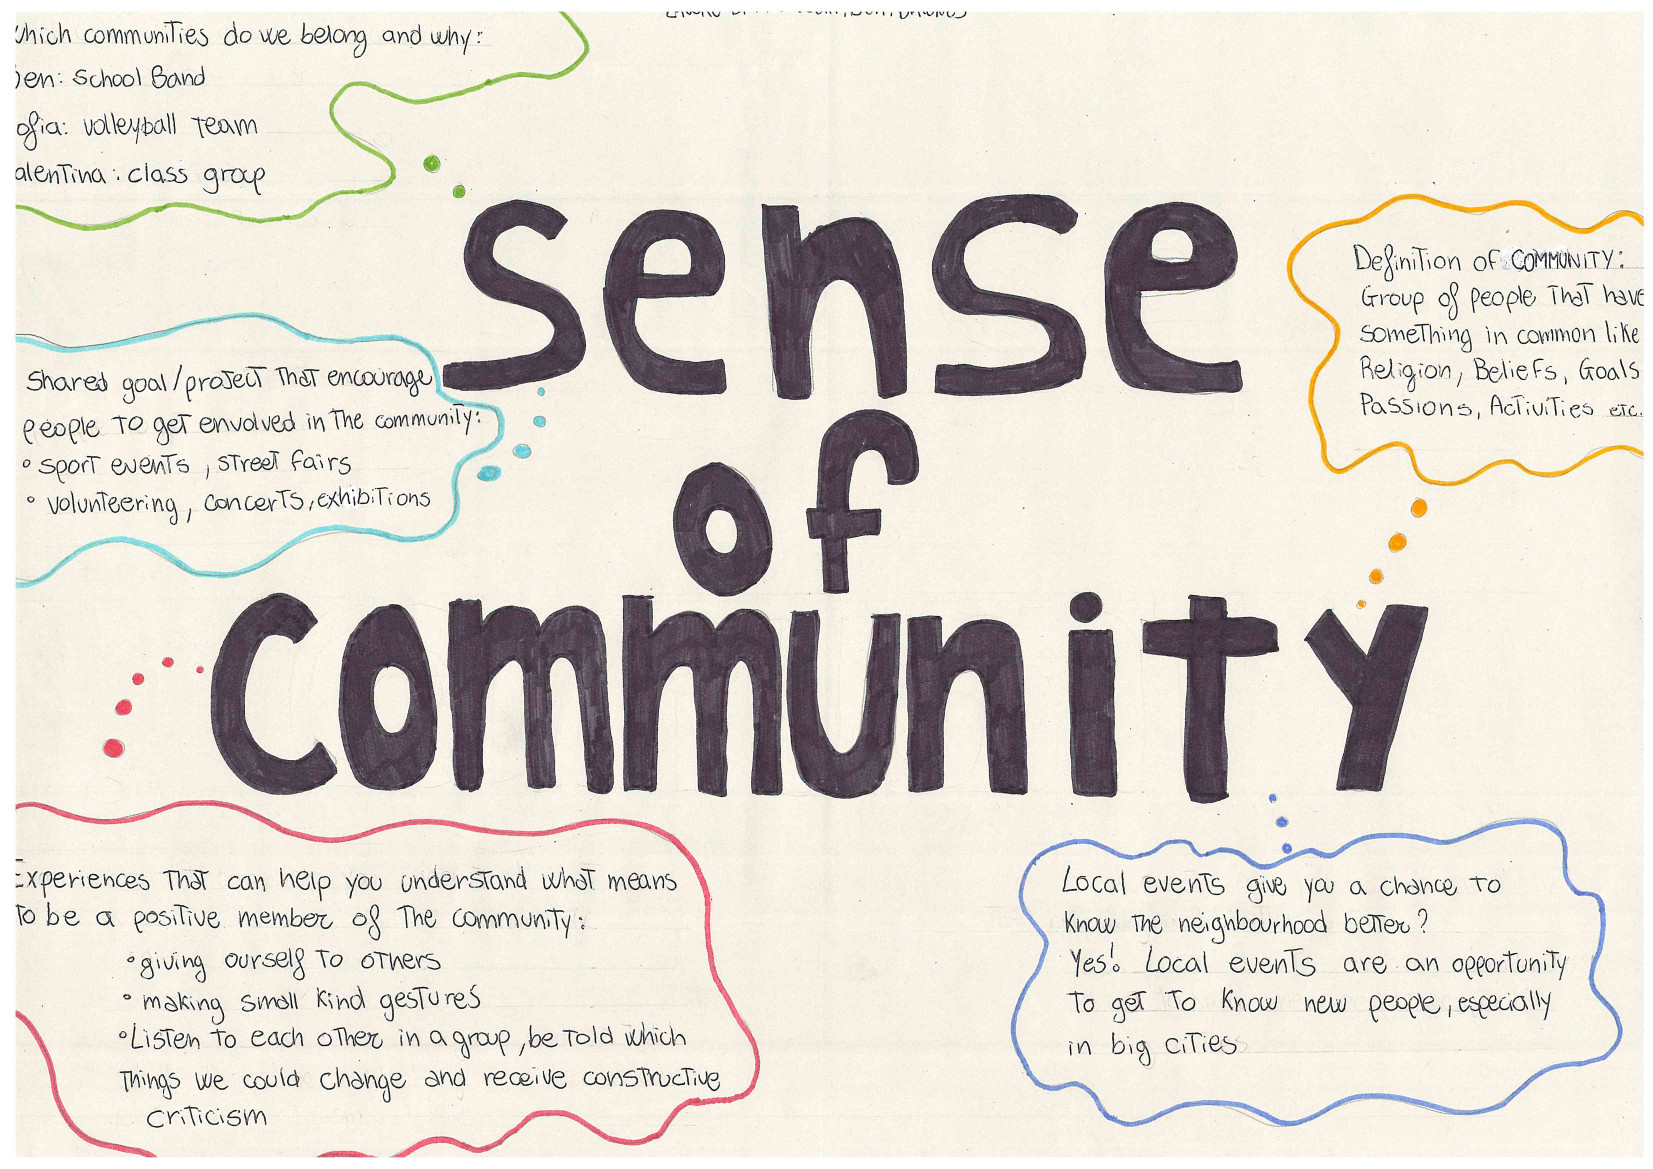 which communities do we belong and why:
en: School Band
ofia: volleyball Team
alentina: class group
sense
of
community
Definition of COMMUNITY:
Group of people That have
something in common like
Religion, Beliefs, Goals
Passions, Activities etc.
Shared goal/project That encourage
people To get envolved in The community:
° sport events, street fairs
° volunteering, concerts, exhibitions
Experiences That can help you understand what means
To be a positive member of The community:
° giving ourself To others
° making small kind gestures
° Listen To each other in a group, be Told which
Things we could change and receive constructive
criticism
Local events give you a chance To
know The neighbourhood better?
Yes! Local events are an opportunity
To get To know new people, especially
in big cities